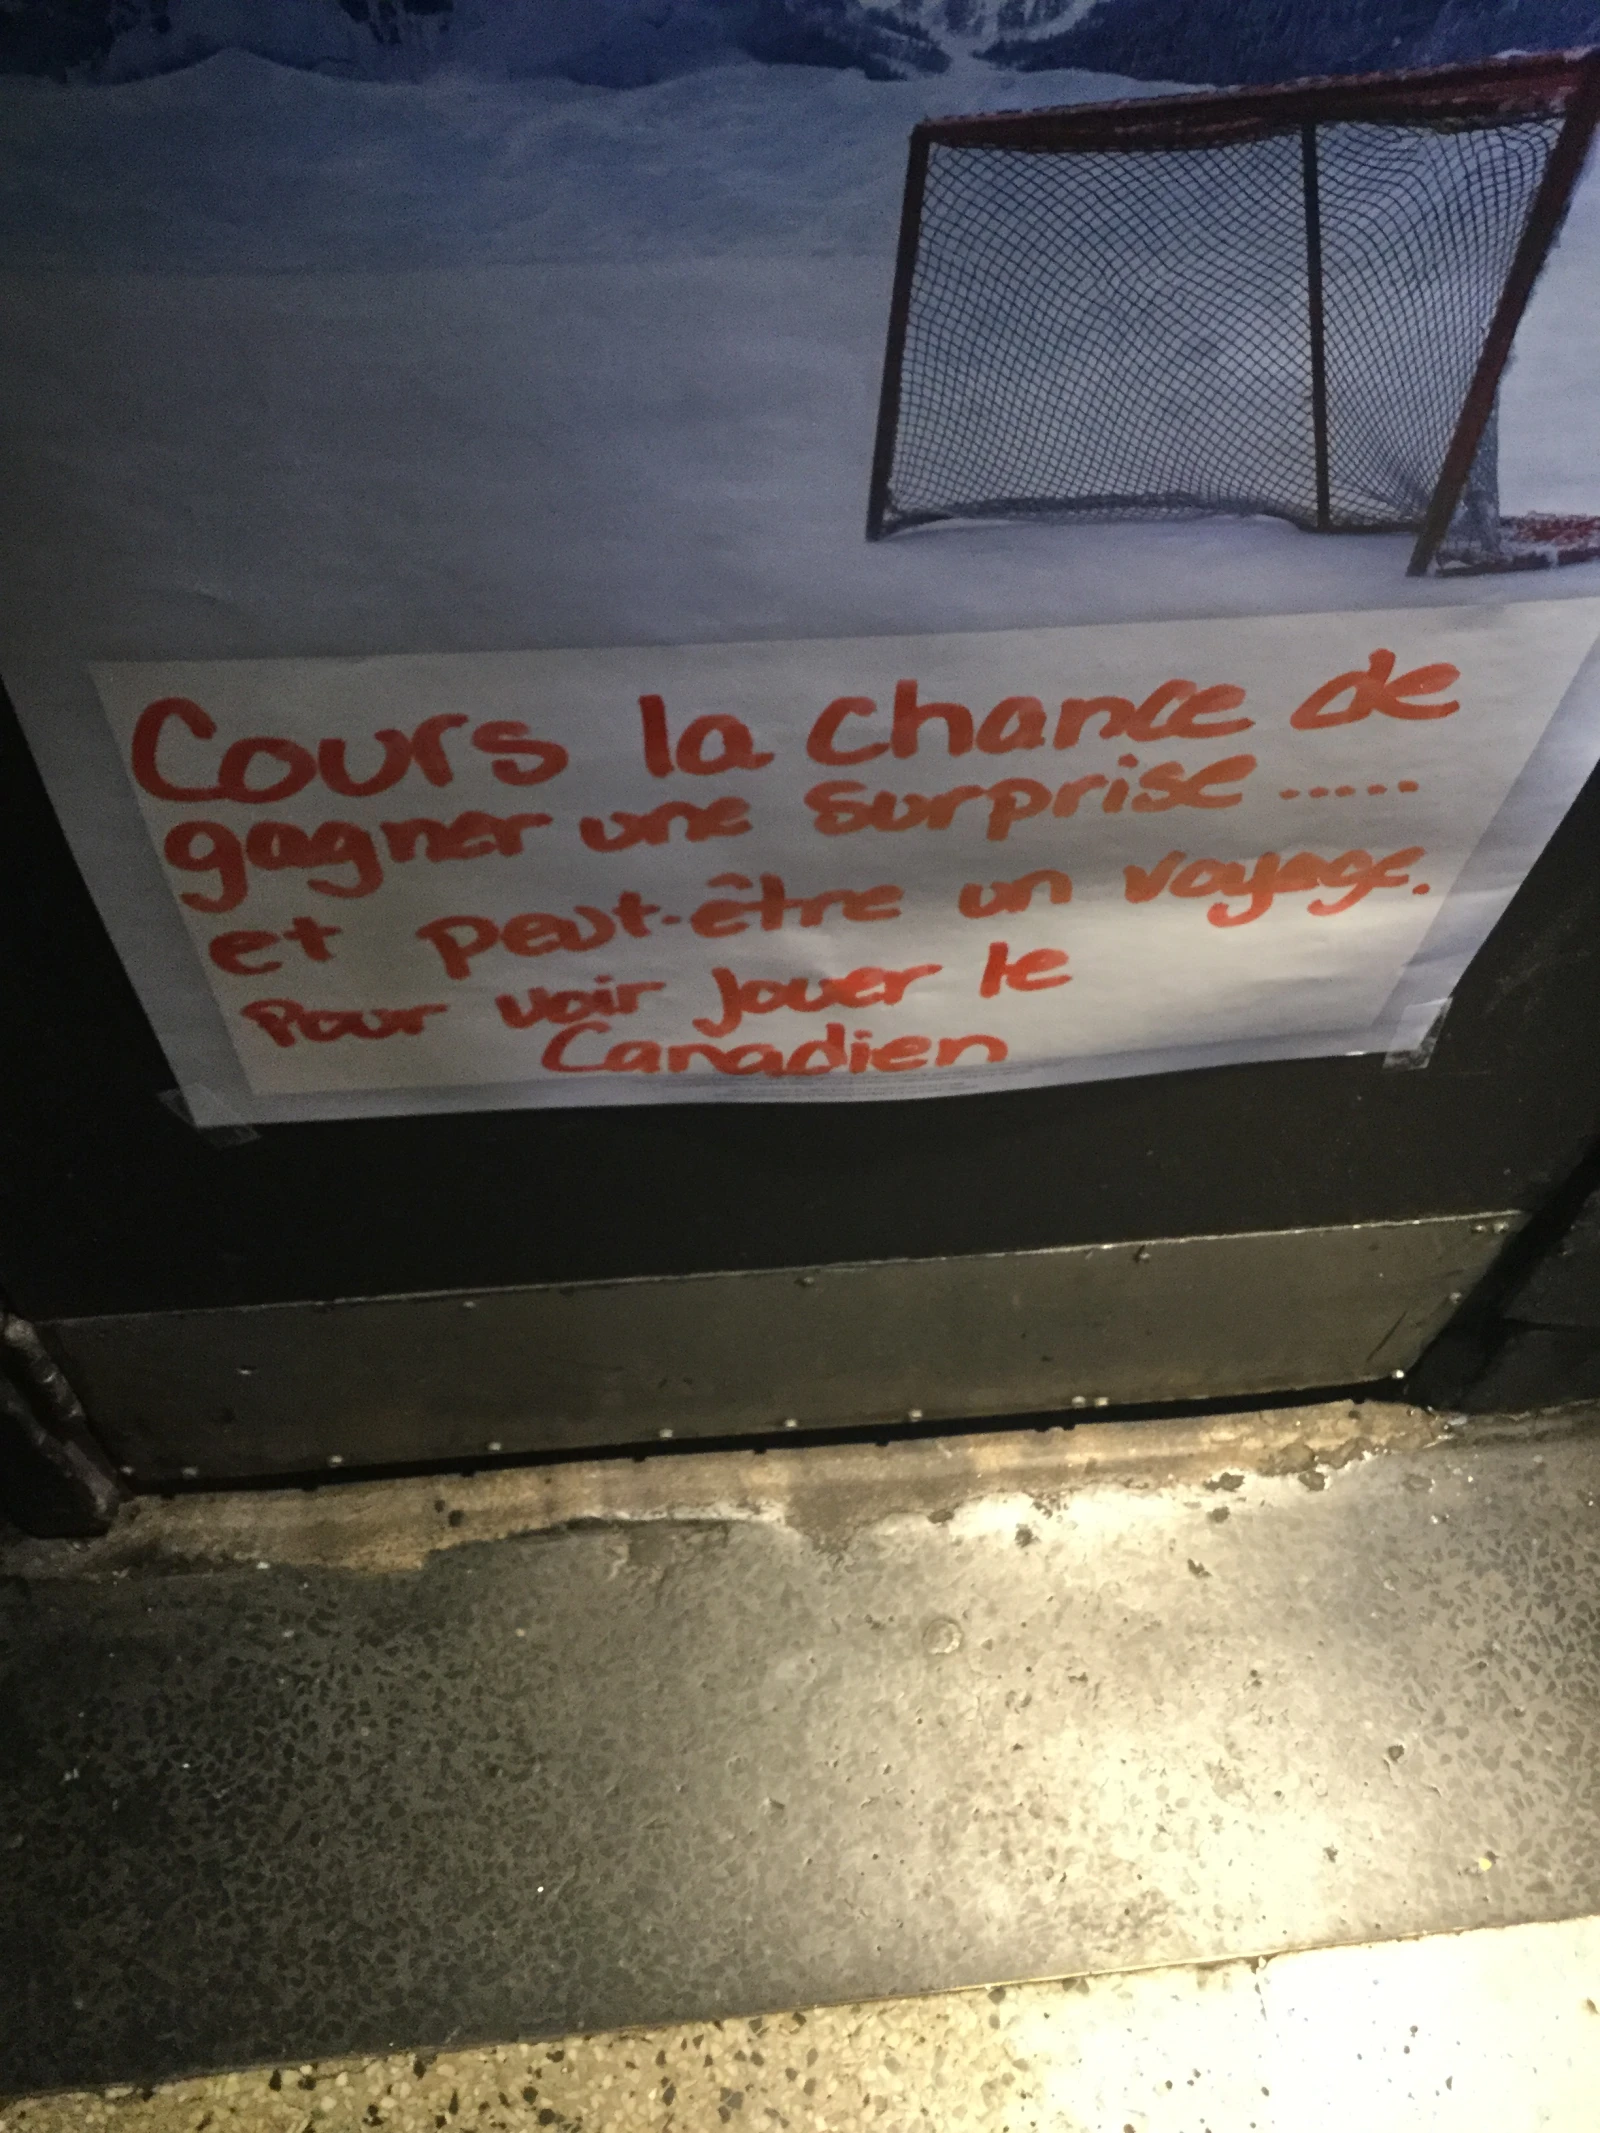 Cours la chance de
gagner une surprise .....
et peut-être un voyage.
Pour voir jouer le
Canadien